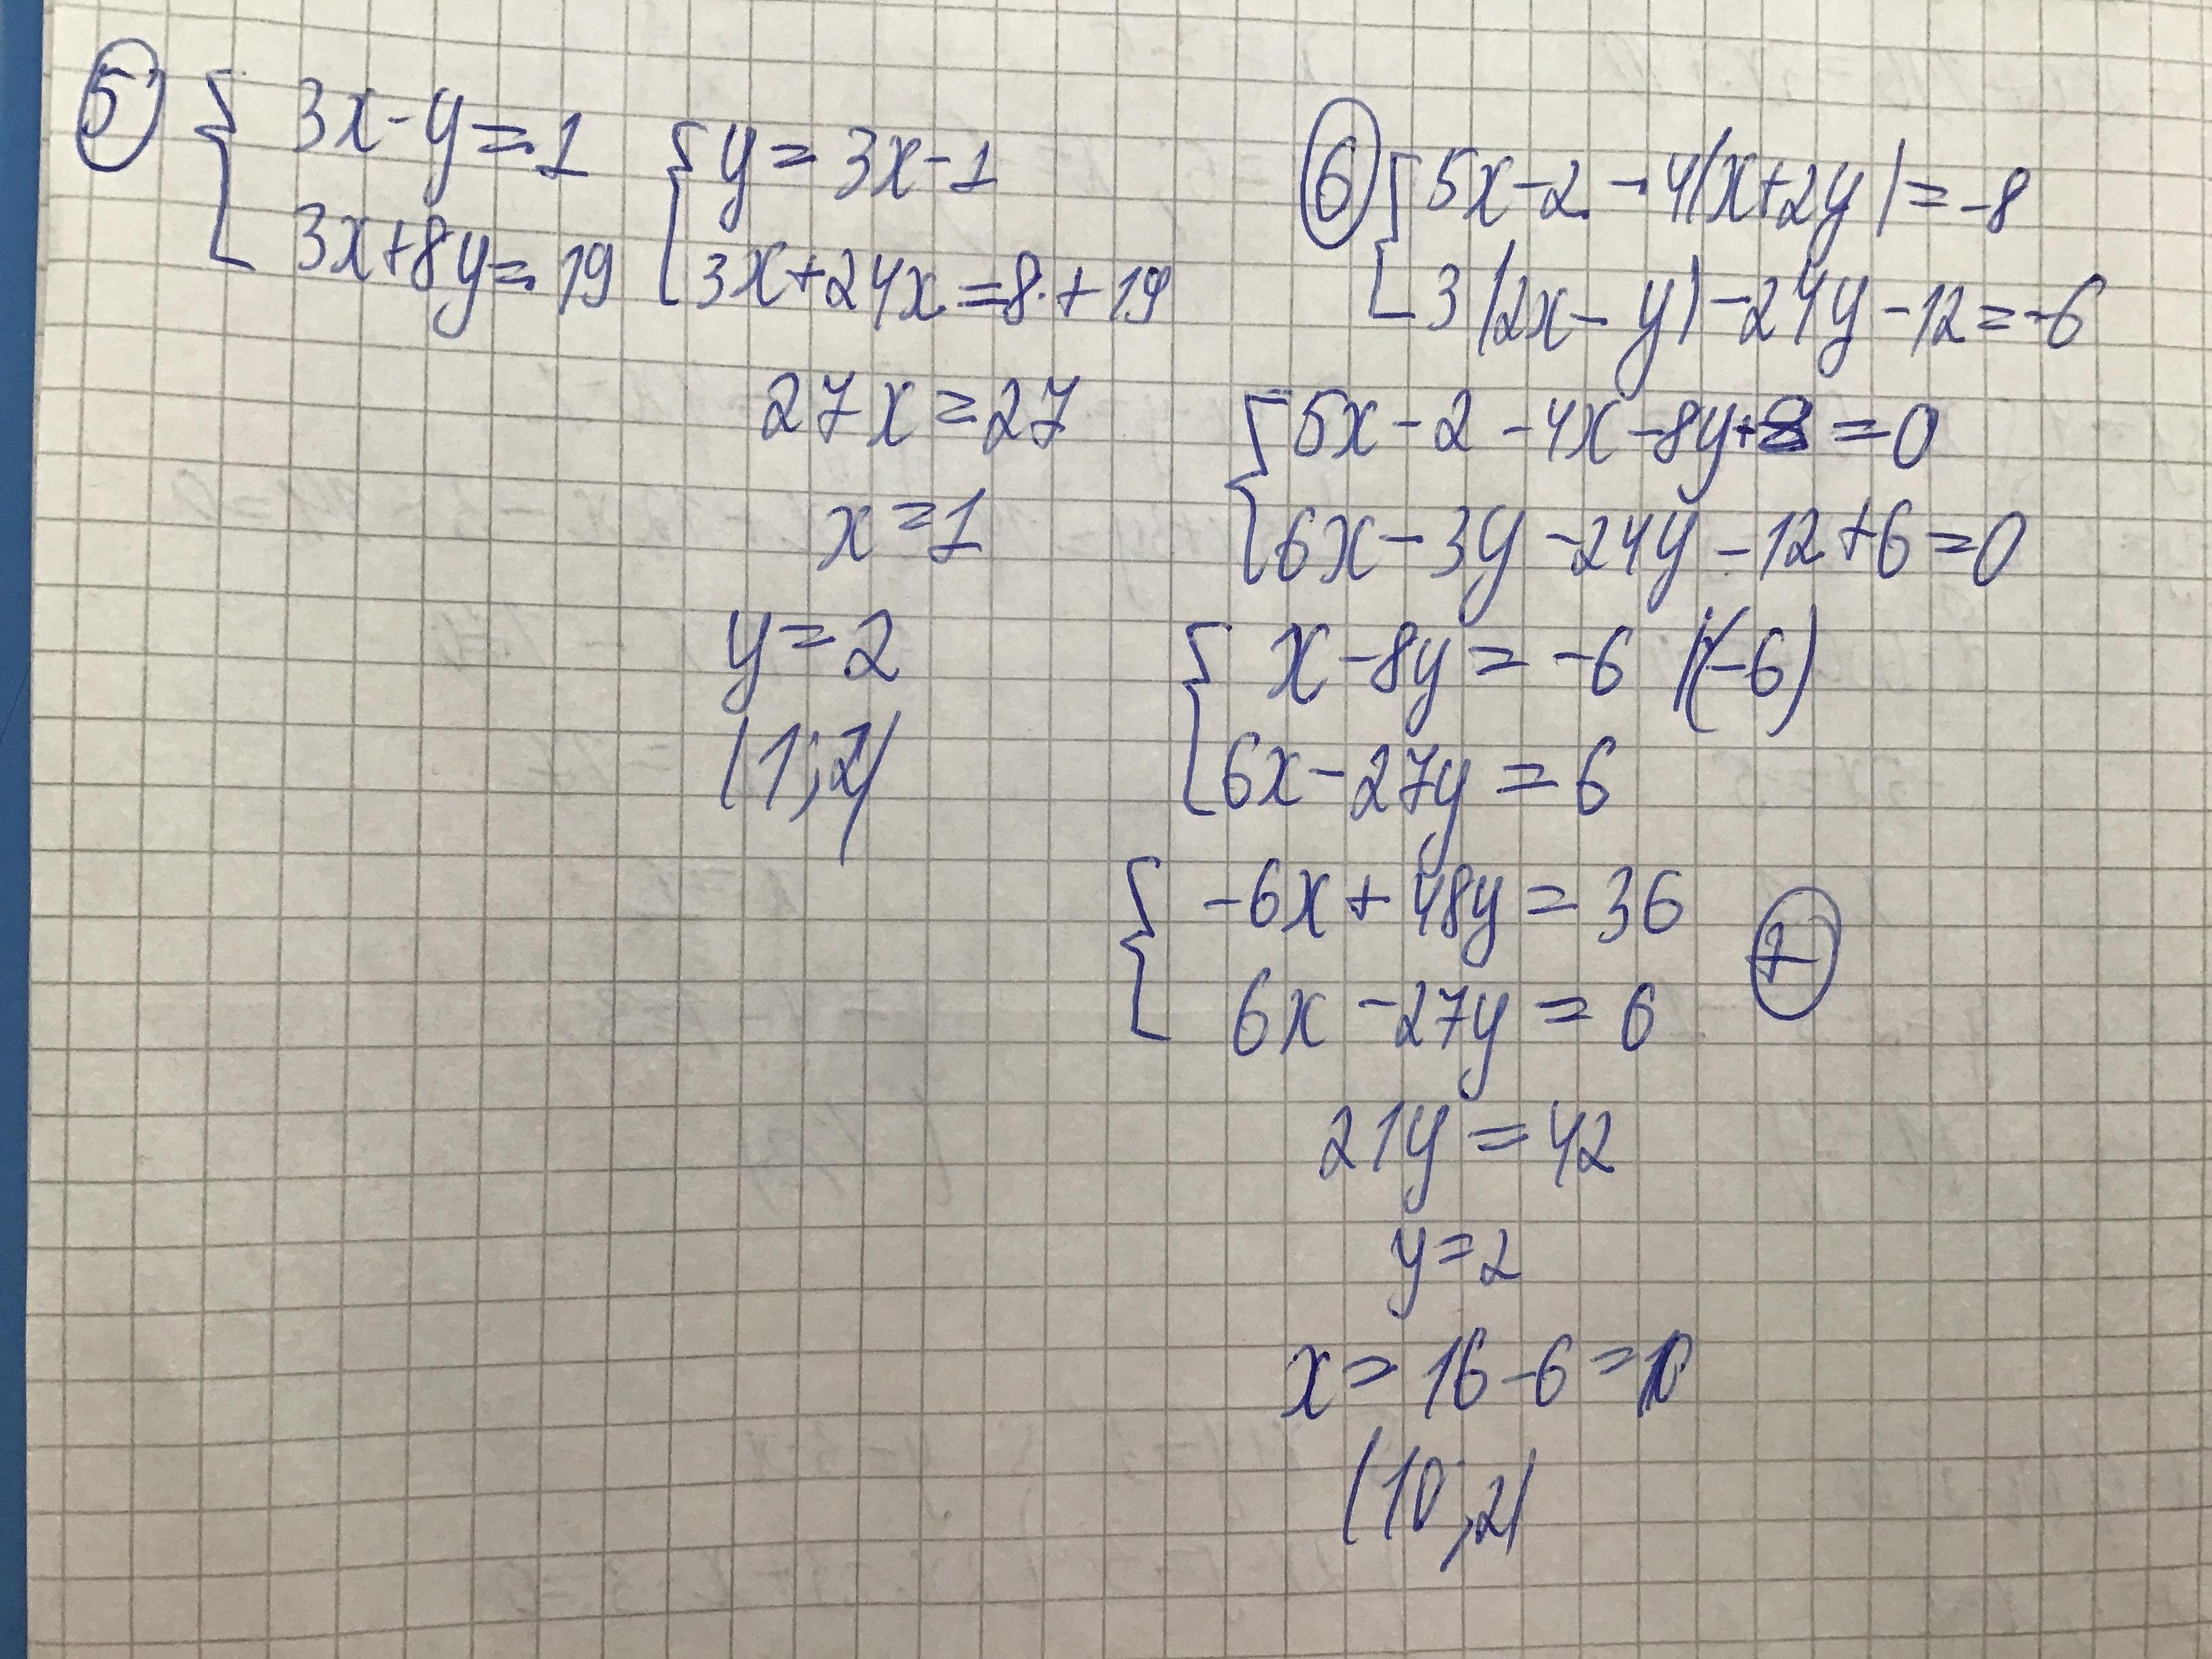 5
3x-y=1
3x+8y=19
y=3x-1
3x+24x=8+19
27x=27
x=1
y=2
(1;2)
6
5x-2-4(x+2y)=-8
3(2x-y)-24y-12=-6
5x-2-4x-8y+8=0
6x-3y-24y-12+6=0
x-8y=-6 |(-6)
6x-27y=6
-6x+48y=36
6x-27y=6
+
21y=42
y=2
x=16-6=10
(10;2)